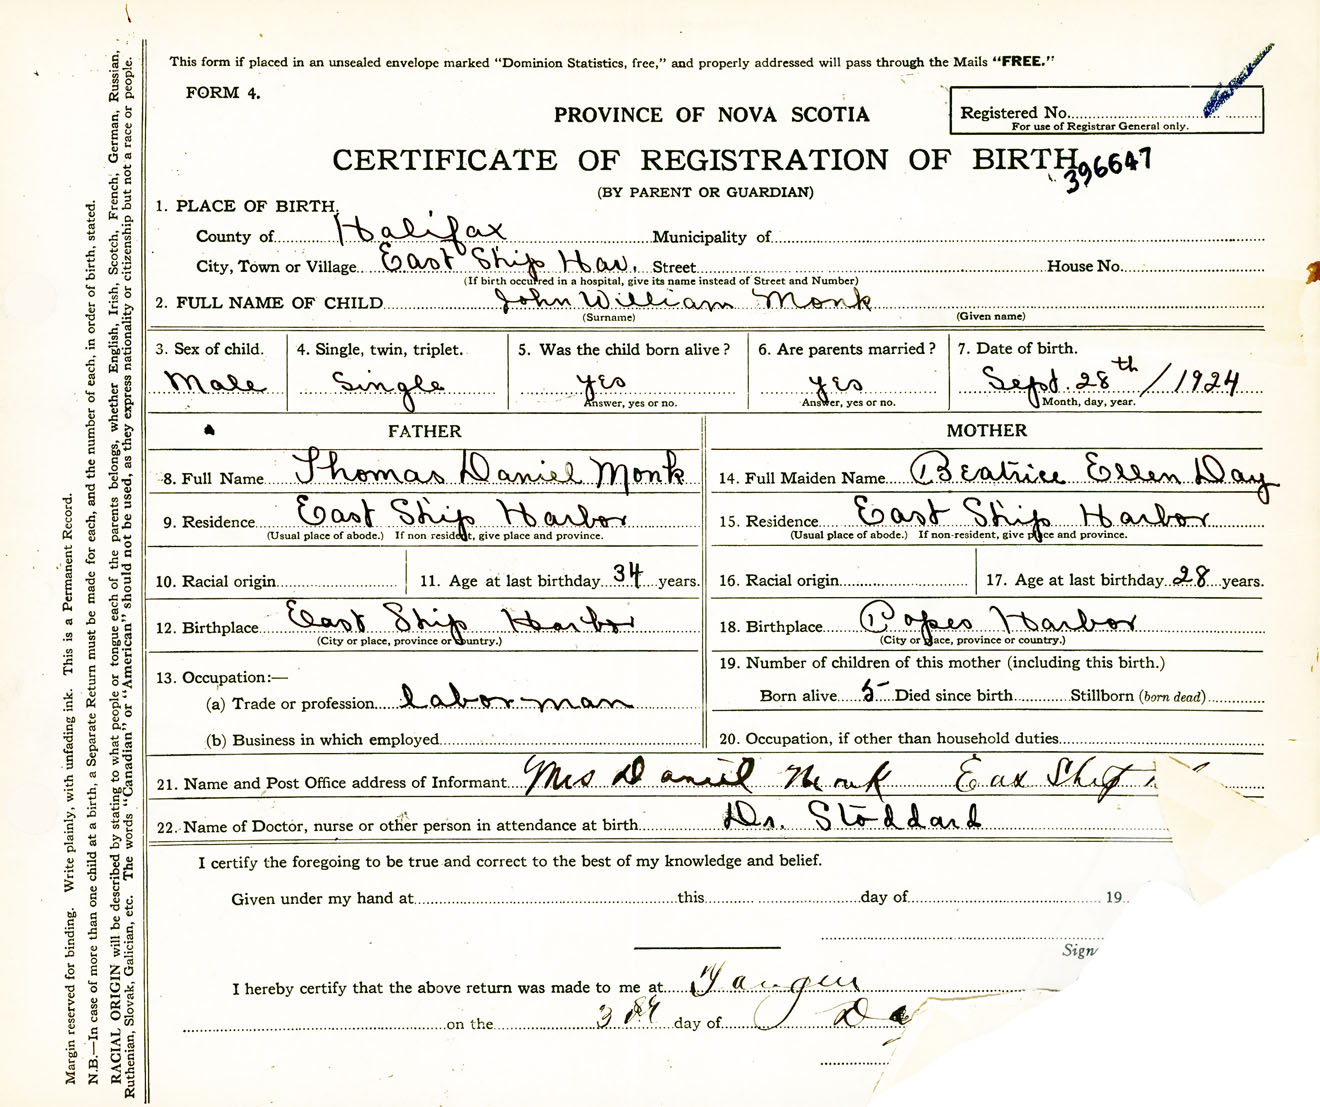 This form if placed in an unsealed envelope marked "Dominion Statistics, free," and properly addressed will pass through the Mails "FREE."
FORM 4.
PROVINCE OF NOVA SCOTIA
Registered No.
For use of Registrar General only.
CERTIFICATE OF REGISTRATION OF BIRTH
396647
(BY PARENT OR GUARDIAN)
1. PLACE OF BIRTH.
County of Halifax Municipality of
City, Town or Village East Ship Har. Street House No.
(If birth occurred in a hospital, give its name instead of Street and Number)
2. FULL NAME OF CHILD John William Monk
(Surname) (Given name)
3. Sex of child. 4. Single, twin, triplet. 5. Was the child born alive? 6. Are parents married? 7. Date of birth.
Male Single yes yes Sept. 28th / 1924
Answer, yes or no. Answer, yes or no. Month, day, year.
FATHER MOTHER
8. Full Name Thomas Daniel Monk 14. Full Maiden Name Beatrice Ellen Day
9. Residence East Ship Harbor 15. Residence East Ship Harbor
(Usual place of abode.) If non resident, give place and province. (Usual place of abode.) If non-resident, give place and province.
10. Racial origin 11. Age at last birthday 34 years. 16. Racial origin 17. Age at last birthday 28 years.
12. Birthplace East Ship Harbor 18. Birthplace Popes Harbor
(City or place, province or country.) (City or place, province or country.)
13. Occupation:— 19. Number of children of this mother (including this birth.)
(a) Trade or profession labor man Born alive 5 Died since birth Stillborn (born dead)
(b) Business in which employed 20. Occupation, if other than household duties
21. Name and Post Office address of Informant Mrs Daniel Monk Eas Ship
22. Name of Doctor, nurse or other person in attendance at birth Dr. Stoddard
I certify the foregoing to be true and correct to the best of my knowledge and belief.
Given under my hand at this day of 19
Sign
I hereby certify that the above return was made to me at Tangier
on the 3 day of
Margin reserved for binding. Write plainly, with unfading ink. This is a Permanent Record.
N.B.—In case of more than one child at a birth, a Separate Return must be made for each, and the number of each, in order of birth, stated.
RACIAL ORIGIN will be described by stating to what people or tongue each of the parents belongs, whether English, Irish, Scotch, French, German, Russian,
Ruthenian, Slovak, Galician, etc. The words "Canadian" or "American" should not be used, as they express nationality or citizenship but not a race or people.